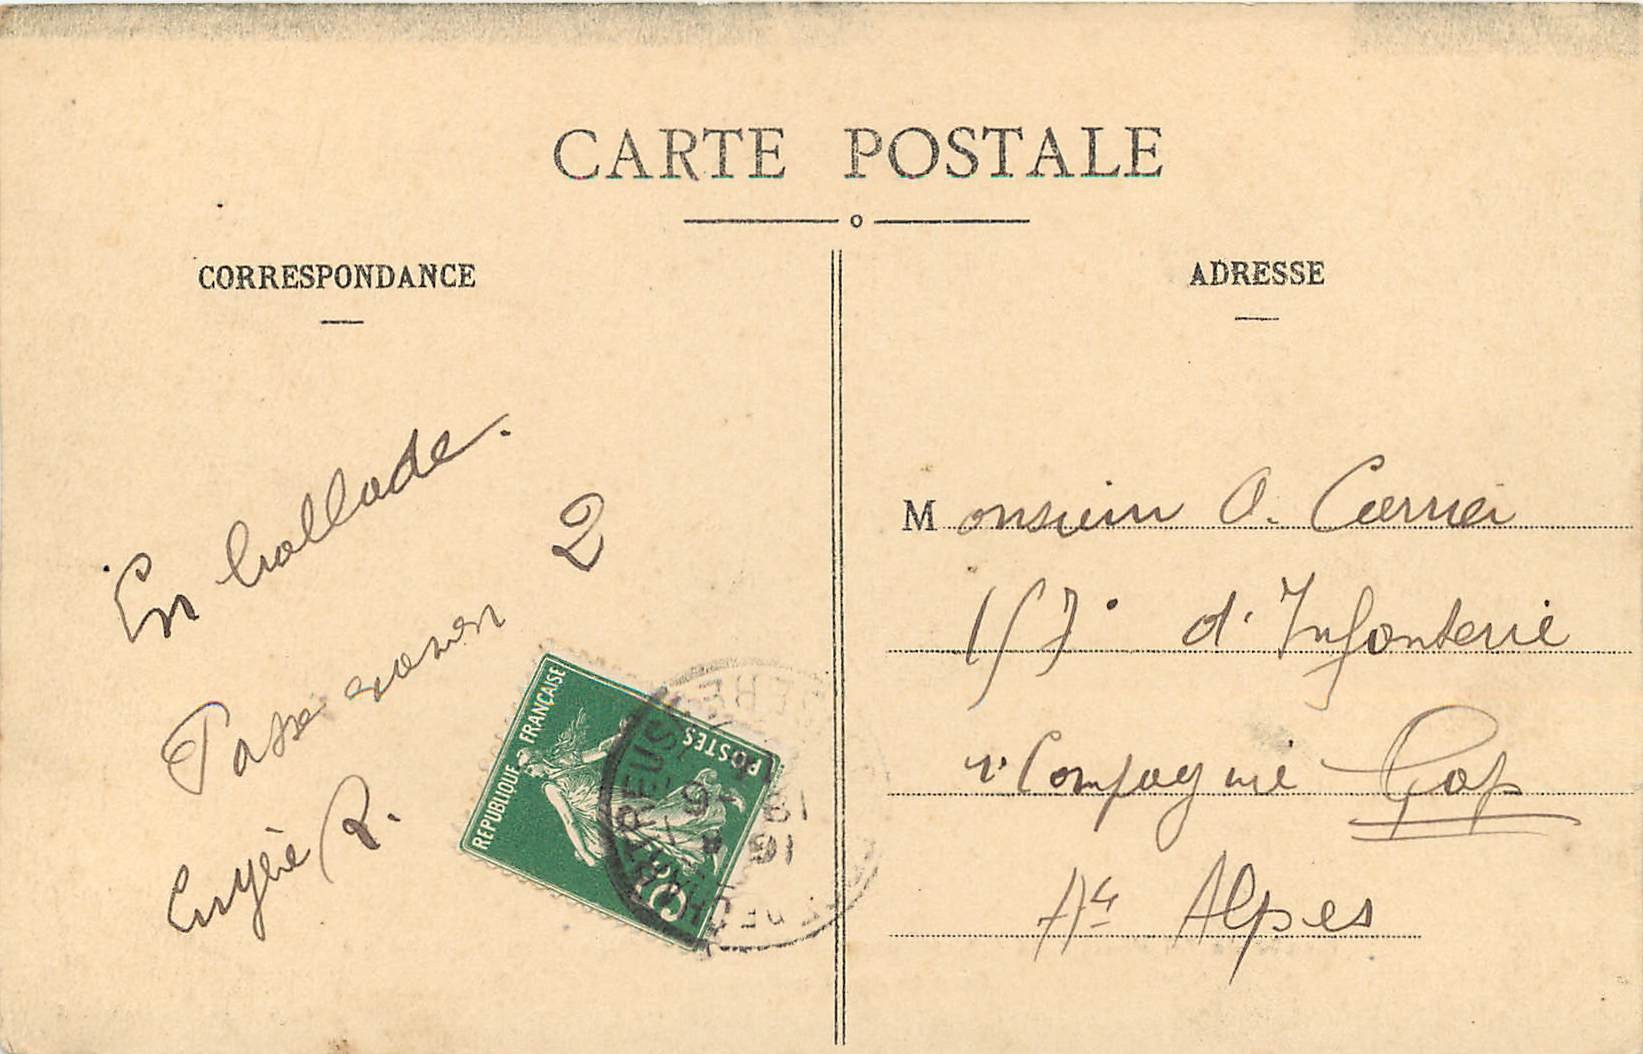 CARTE POSTALE
CORRESPONDANCE
ADRESSE
En ballade.
2
Passe
Eugène R.
REPUBLIQUE FRANÇAISE
POSTES
5c
CHARTREUSE
Monsieur A. Carrier
157e d'Infanterie
Compagnie Gap
Htes Alpes